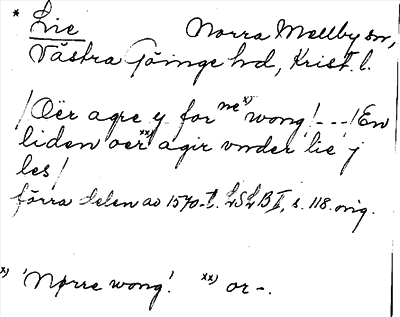 * Lie Norra Mellby sn,
Västra Göinge hd, Krist. l.
/Oër agre y for ne x) wong/---/En
liden oer xx) agir vnder lie y
les/
förra delen av 1570-t. LSLB II, s. 118. orig.
x) 'Nørre wong'. xx) or-.